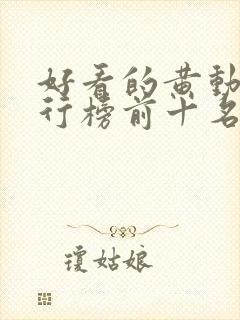 好看的黄動
行榜前十名
瓊姑娘